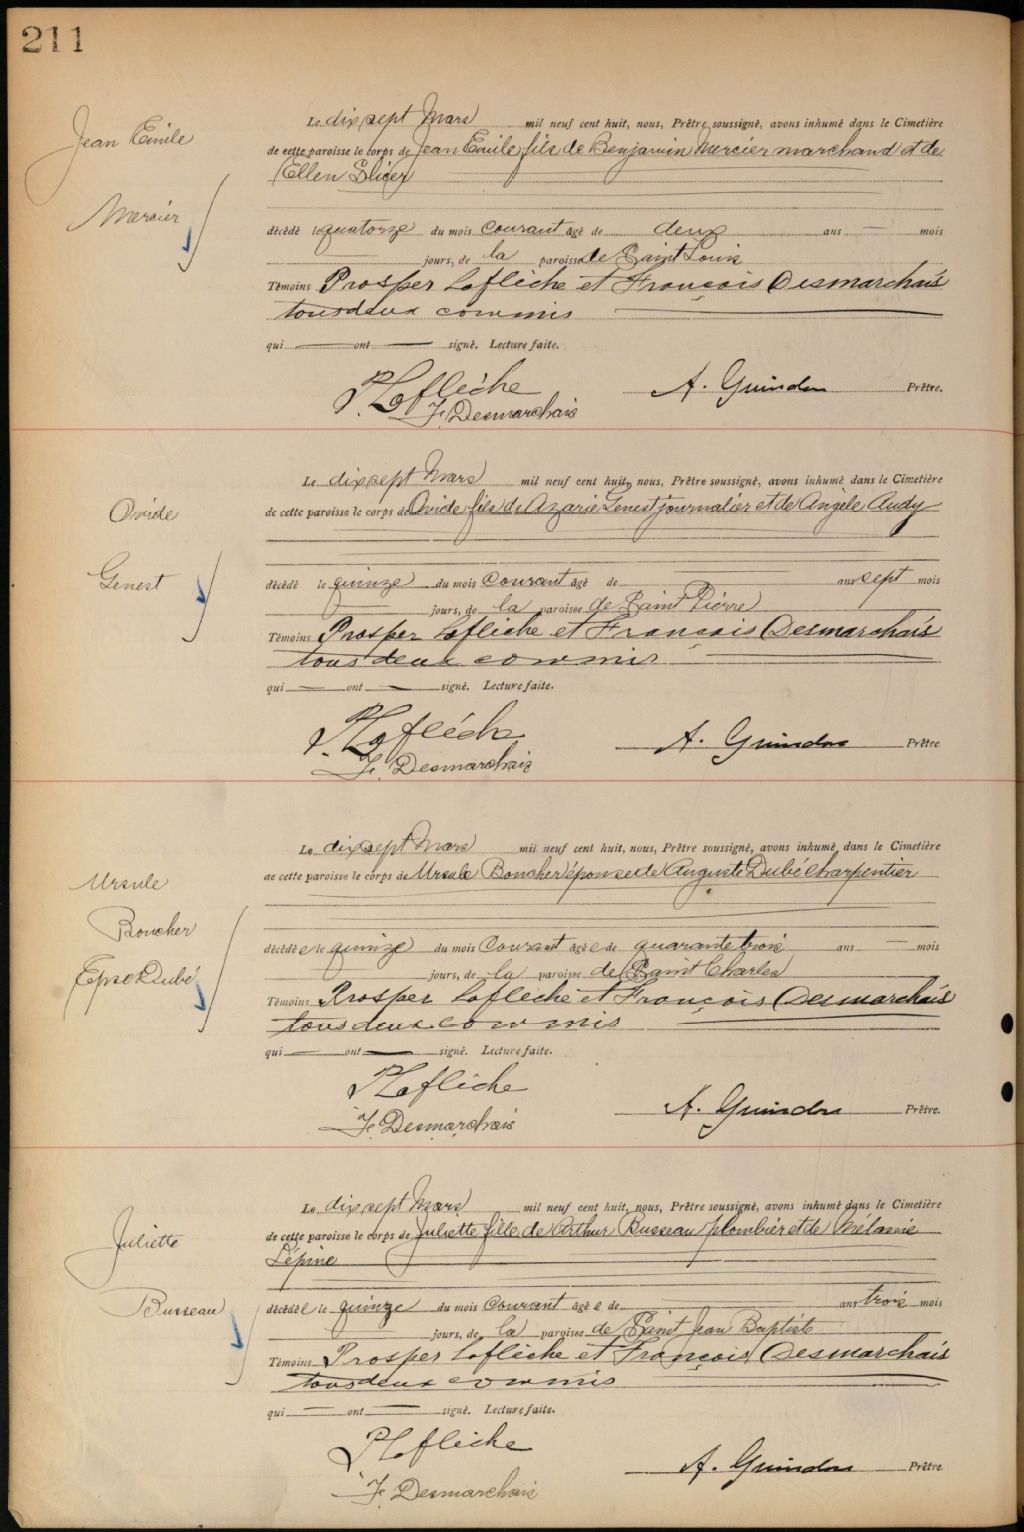 211
Jean Emile
Mercier
Le dix sept Mars mil neuf cent huit, nous, Prêtre soussigné, avons inhumé dans le Cimetière
de cette paroisse le corps de Jean Emile fils de Benjamin Mercier marchand et de
Ellen Slicer
décédé le quatorze du mois courant âgé de deux ans — mois
jours, de la paroisse de Saint Louis
Témoins Prosper Laflèche et François Desmarchais
tous deux commis
qui — ont — signé. Lecture faite.
P. Laflèche A. Guindon Prêtre.
F. Desmarchais
Ovide
Genest
Le dix sept Mars mil neuf cent huit, nous, Prêtre soussigné, avons inhumé dans le Cimetière
de cette paroisse le corps de Ovide fils de Azarie Genest journalier et de Angele Audy
décédé le quinze du mois courant âgé de — ans sept mois
jours, de la paroisse de Saint Pierre
Témoins Prosper Laflèche et François Desmarchais
tous deux commis
qui — ont — signé. Lecture faite.
P. Laflèche A. Guindon Prêtre
F. Desmarchais
Ursule
Boucher
Epse Dubé
Le dix sept Mars mil neuf cent huit, nous, Prêtre soussigné, avons inhumé dans le Cimetière
de cette paroisse le corps de Ursule Boucher épouse de Auguste Dubé charpentier
décédée le quinze du mois courant âgée de quarante trois ans — mois
jours, de la paroisse de Saint Charles
Témoins Prosper Laflèche et François Desmarchais
tous deux commis
qui — ont — signé. Lecture faite.
P Laflèche
F. Desmarchais A. Guindon Prêtre.
Juliette
Busseau
Le dix sept Mars mil neuf cent huit, nous, Prêtre soussigné, avons inhumé dans le Cimetière
de cette paroisse le corps de Juliette fille de Arthur Busseau plombier et de Mélanie
Lépine
décédée le quinze du mois courant âgée de — ans trois mois
jours, de la paroisse de Saint Jean Baptiste
Témoins Prosper Laflèche et François Desmarchais
tous deux commis
qui — ont — signé. Lecture faite.
P Laflèche
F. Desmarchais A. Guindon Prêtre.